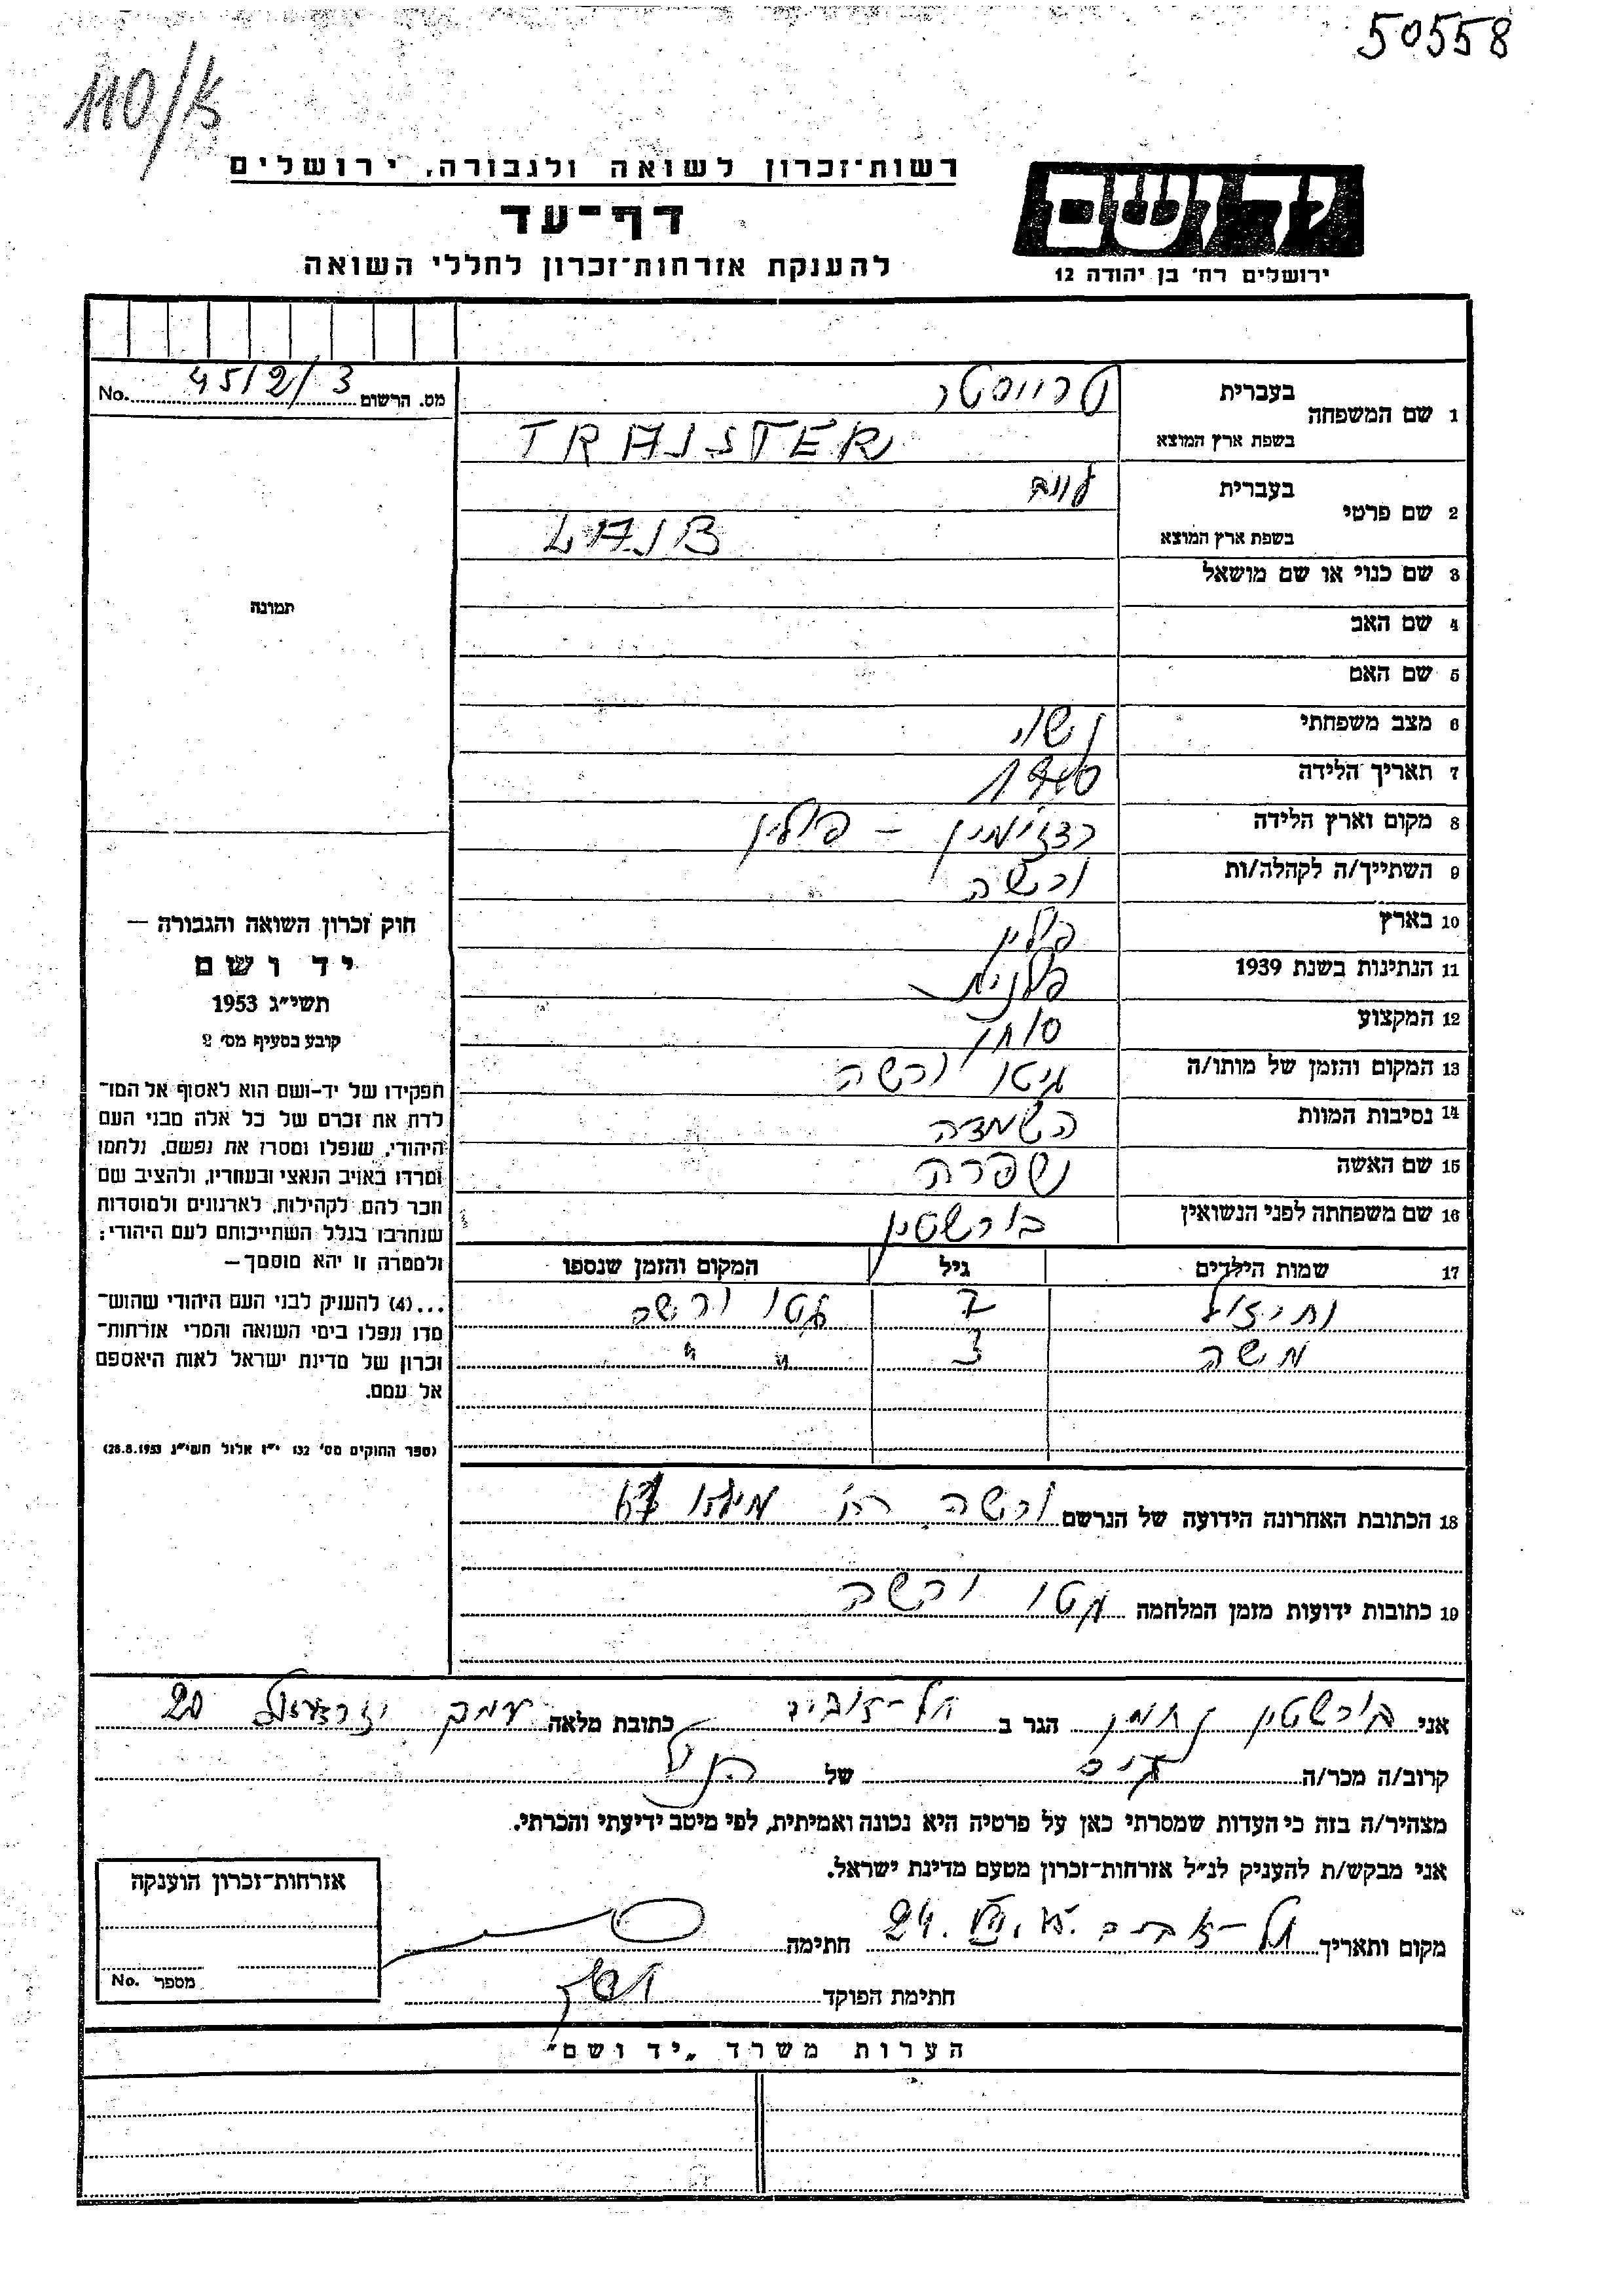 50558
110/k
רשות־זכרון לשואה ולגבורה, ירושלים
דף־עד
להענקת אזרחות־זכרון לחללי השואה
יד ושם
ירושלים רח' בן יהודה 12
מס. הרשום 45/2/3 No.
1 שם המשפחה
בעברית טרייסטר
בשפת ארץ המוצא TRAJSTER
2 שם פרטי
בעברית לייב
בשפת ארץ המוצא LAJB
3 שם כנוי או שם מושאל
4 שם האב
5 שם האם
6 מצב משפחתי נשוי
7 תאריך הלידה
8 מקום וארץ הלידה רדזימין – פולין
9 השתייך/ה לקהלה/ות ורשה
10 בארץ פולין
11 הנתינות בשנת 1939 פולנית
12 המקצוע סוחר
13 המקום והזמן של מותו/ה גיטו ורשה
14 נסיבות המוות השמדה
15 שם האשה שפרה
16 שם משפחתה לפני הנשואין בורשטין
17 שמות הילדים גיל המקום והזמן שנספו
7 גטו ורשה
משה 3 " "
18 הכתובת האחרונה הידועה של הנרשם ורשה רח' מילא
19 כתובות ידועות מזמן המלחמה גטו ורשה
תמונה
חוק זכרון השואה והגבורה —
יד ושם
תשי״ג 1953
קובע בסעיף מס' 2
תפקידו של יד-ושם הוא לאסוף אל המו־
לדת את זכרם של כל אלה מבני העם
היהודי, שנפלו ומסרו את נפשם, נלחמו
ומרדו באויב הנאצי ובעוזריו, ולהציב שם
וזכר להם, לקהילות, לארגונים ולמוסדות
שנחרבו בגלל השתייכותם לעם היהודי;
ולמטרה זו יהא מוסמך —
...(4) להעניק לבני העם היהודי שהוש־
מדו ונפלו בימי השואה והמרי אזרחות־
זכרון של מדינת ישראל לאות היאספם
אל עמם.
(ספר החוקים מס' 132 י״ז אלול תשי״ג 28.8.1953)
אני בורשטין נחמן הגר ב תל-אביב כתובת מלאה עמק יזרעאל 20
קרוב/ה מכר/ה גיס של הנ״ל
מצהיר/ה בזה כי העדות שמסרתי כאן על פרטיה היא נכונה ואמיתית, לפי מיטב ידיעתי והכרתי.
אני מבקש/ת להעניק לנ״ל אזרחות־זכרון מטעם מדינת ישראל.
מקום ותאריך תל-אביב 24. חתימה
חתימת הפוקד
אזרחות־זכרון הוענקה
מספר No.
הערות משרד „יד ושם"